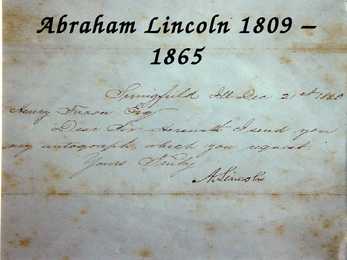 Abraham Lincoln 1809 –
1865
Springfield, Ill. Dec 21st 1860
Henry Esq
Dear Sir Herewith I send you
my autograph which you request.
Yours truly
A. Lincoln